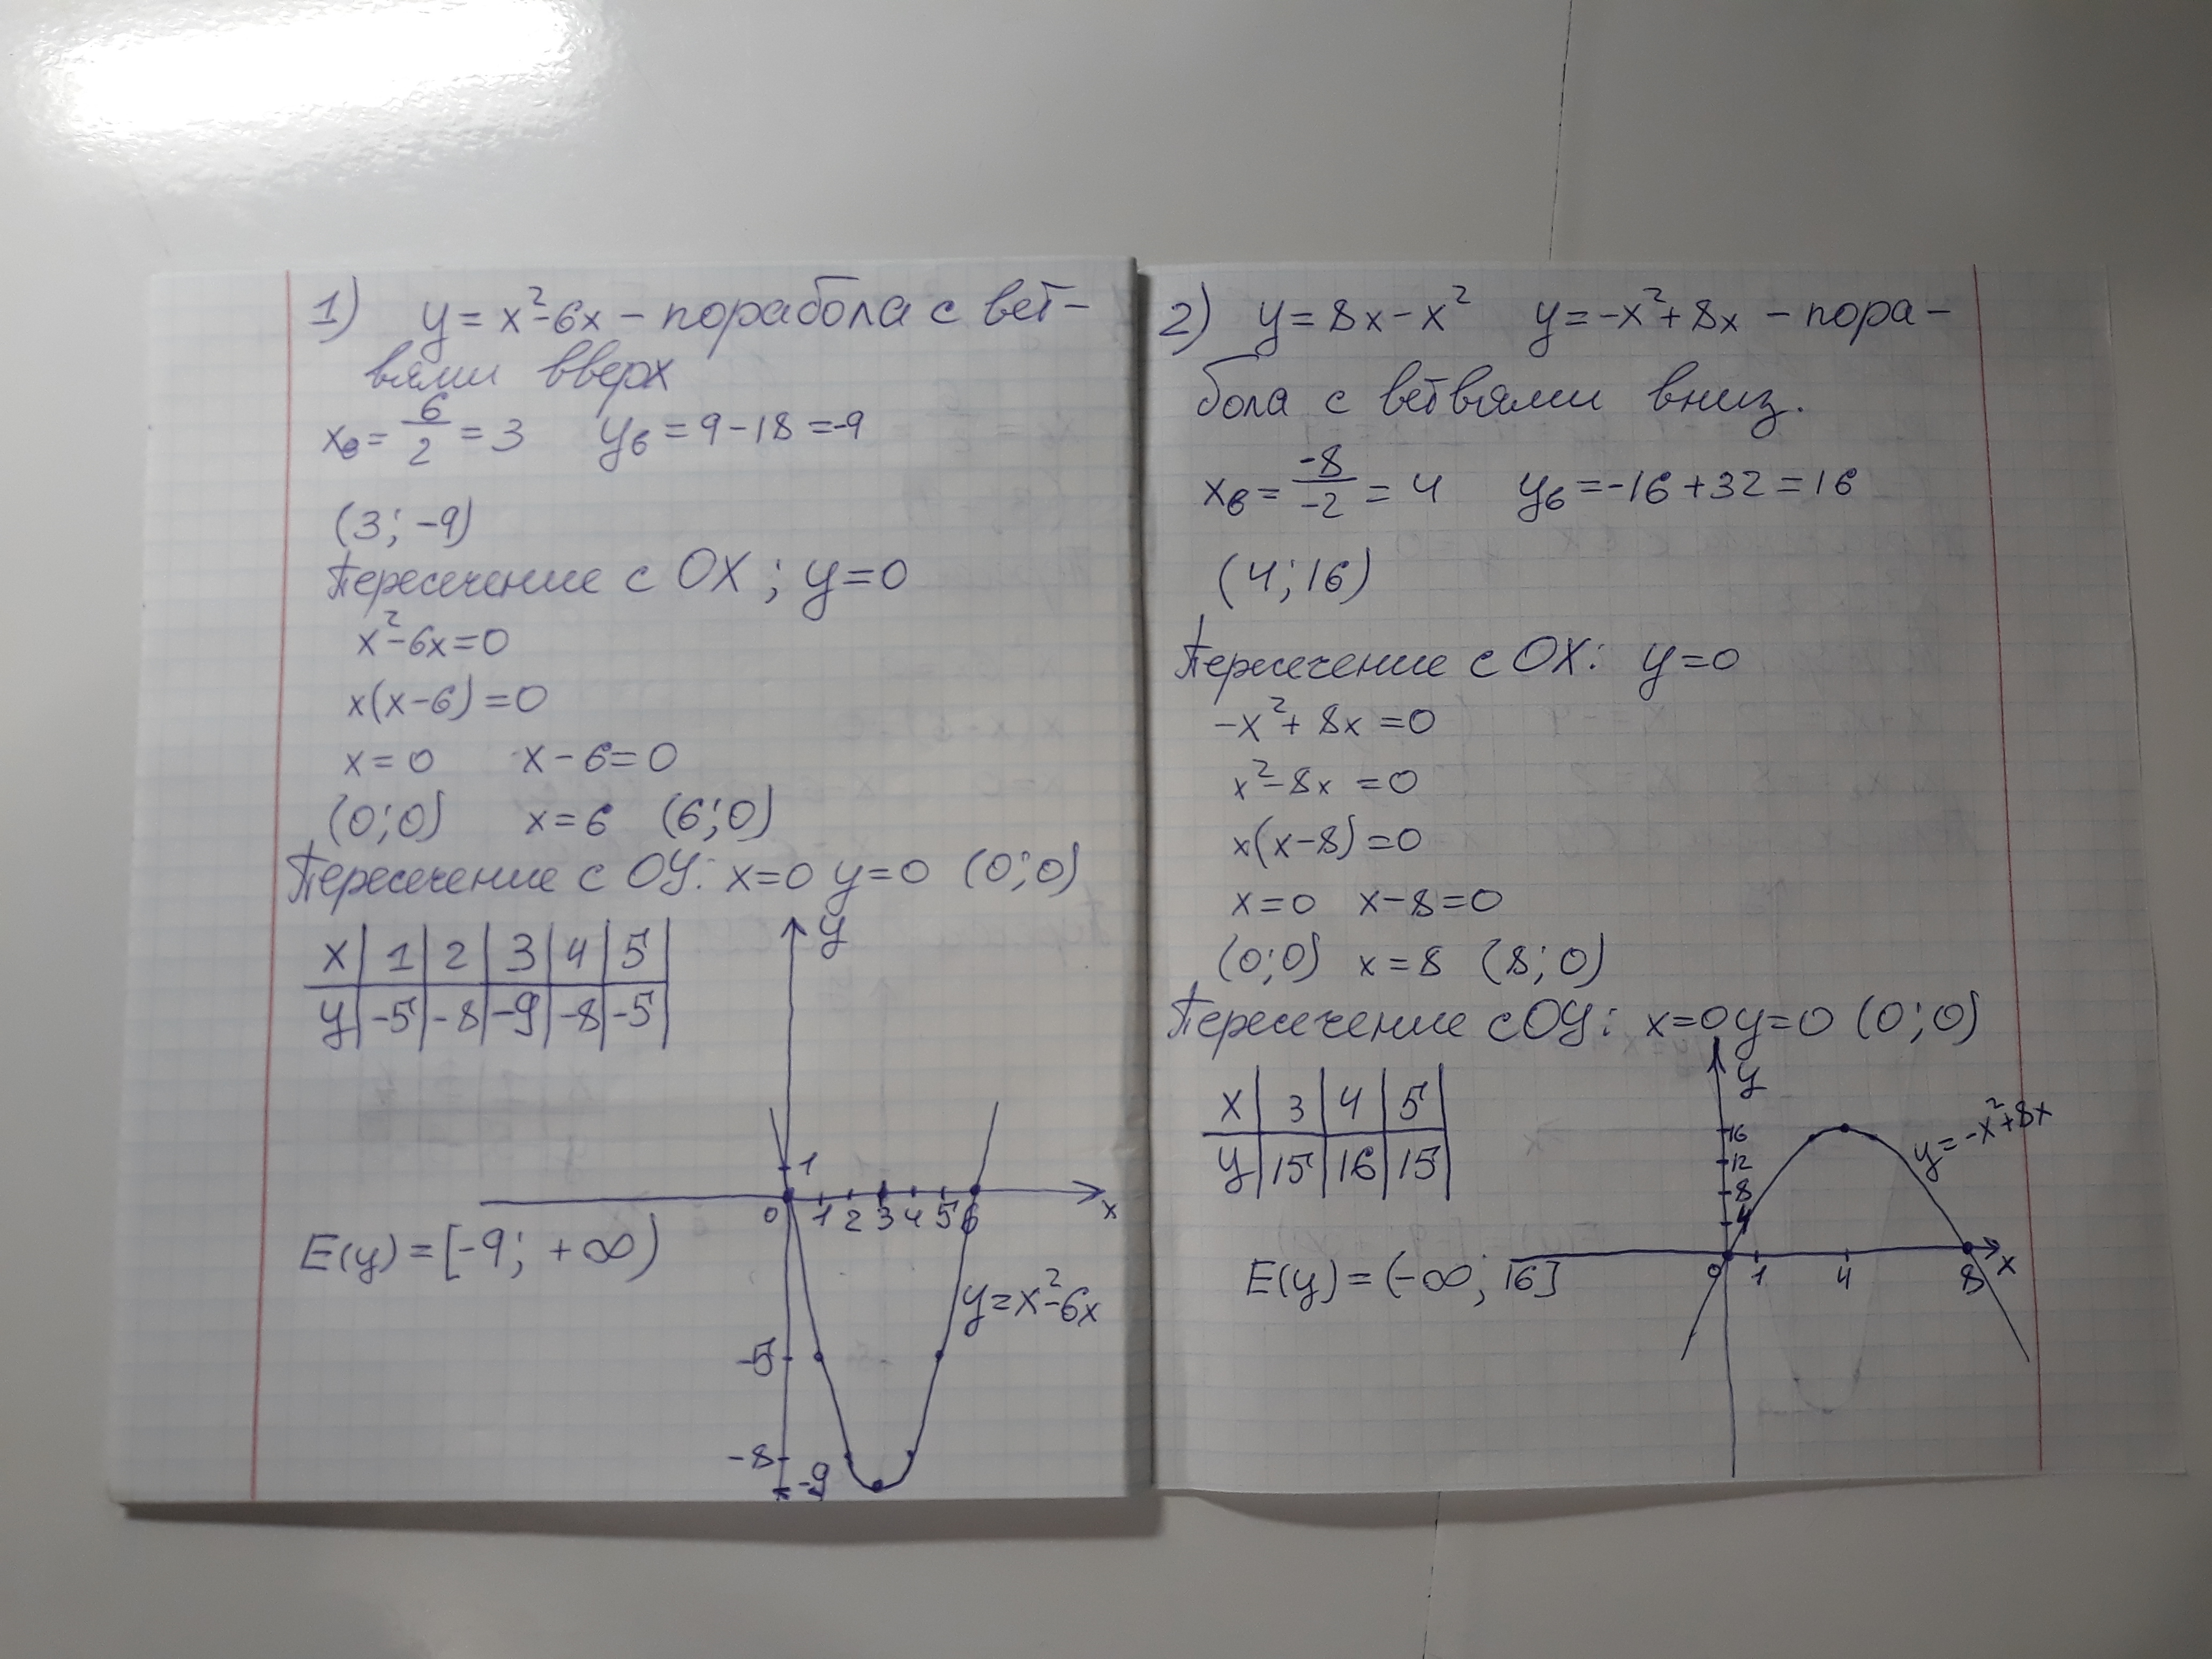 1) y = x² - 6x - порабола с вет-
вями вверх
xв = 6/2 = 3 yв = 9 - 18 = -9
(3; -9)
Пересечение с OX; y=0
x² - 6x = 0
x(x-6) = 0
x = 0 x - 6 = 0
(0;0) x = 6 (6;0)
Пересечение с OY: x=0 y=0 (0;0)
x 1 2 3 4 5
y -5 -8 -9 -8 -5
y
1
0 1 2 3 4 5 6 x
E(y) = [-9; +∞)
y = x² - 6x
-5
-8
-9
2) y = 8x - x² y = -x² + 8x - пора-
бола с ветвями вниз.
xв = -8/-2 = 4 yв = -16 + 32 = 16
(4; 16)
Пересечение с OX: y=0
-x² + 8x = 0
x² - 8x = 0
x(x-8) = 0
x = 0 x - 8 = 0
(0;0) x = 8 (8;0)
Пересечение с OY: x=0 y=0 (0;0)
x 3 4 5
y 15 16 15
y
16
12
8
4
y = -x² + 8x
0 1 4 8 x
E(y) = (-∞; 16]